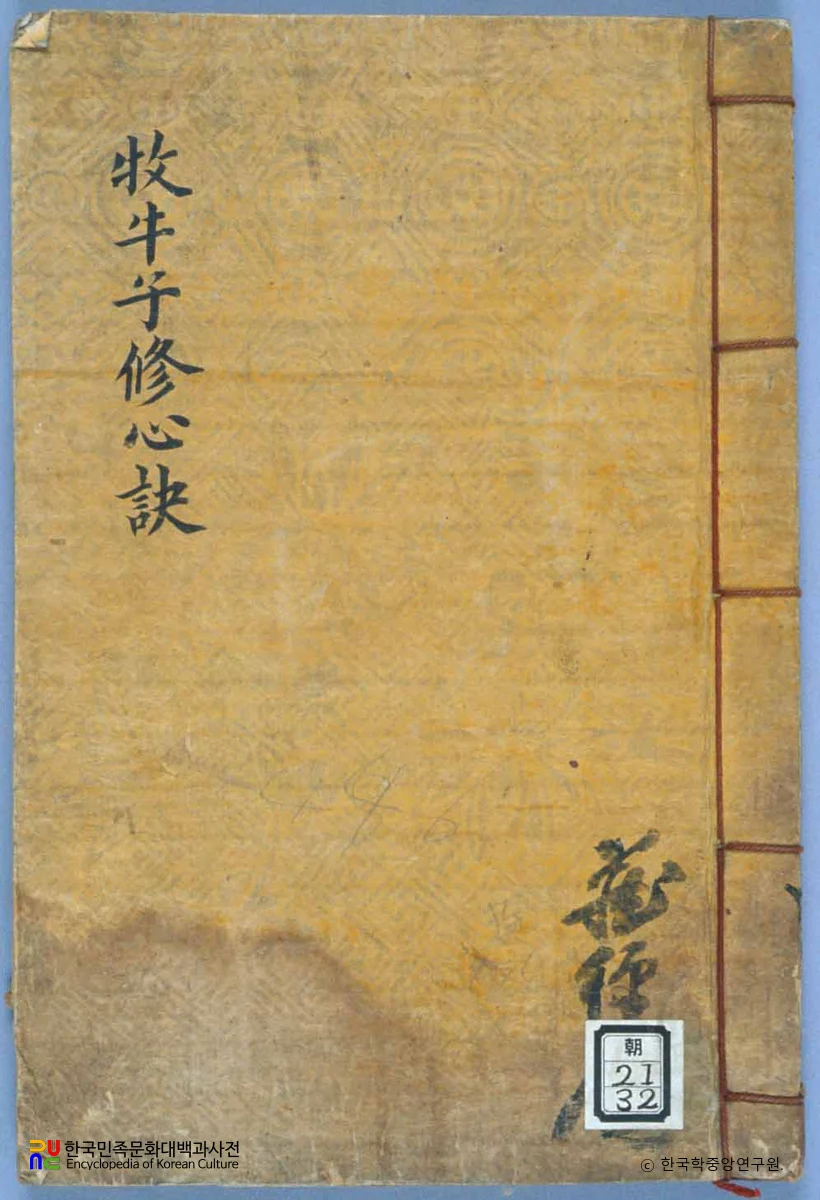 牧牛子修心訣
藏經
朝
21
32
한국민족문화대백과사전
Encyclopedia of Korean Culture
ⓒ 한국학중앙연구원